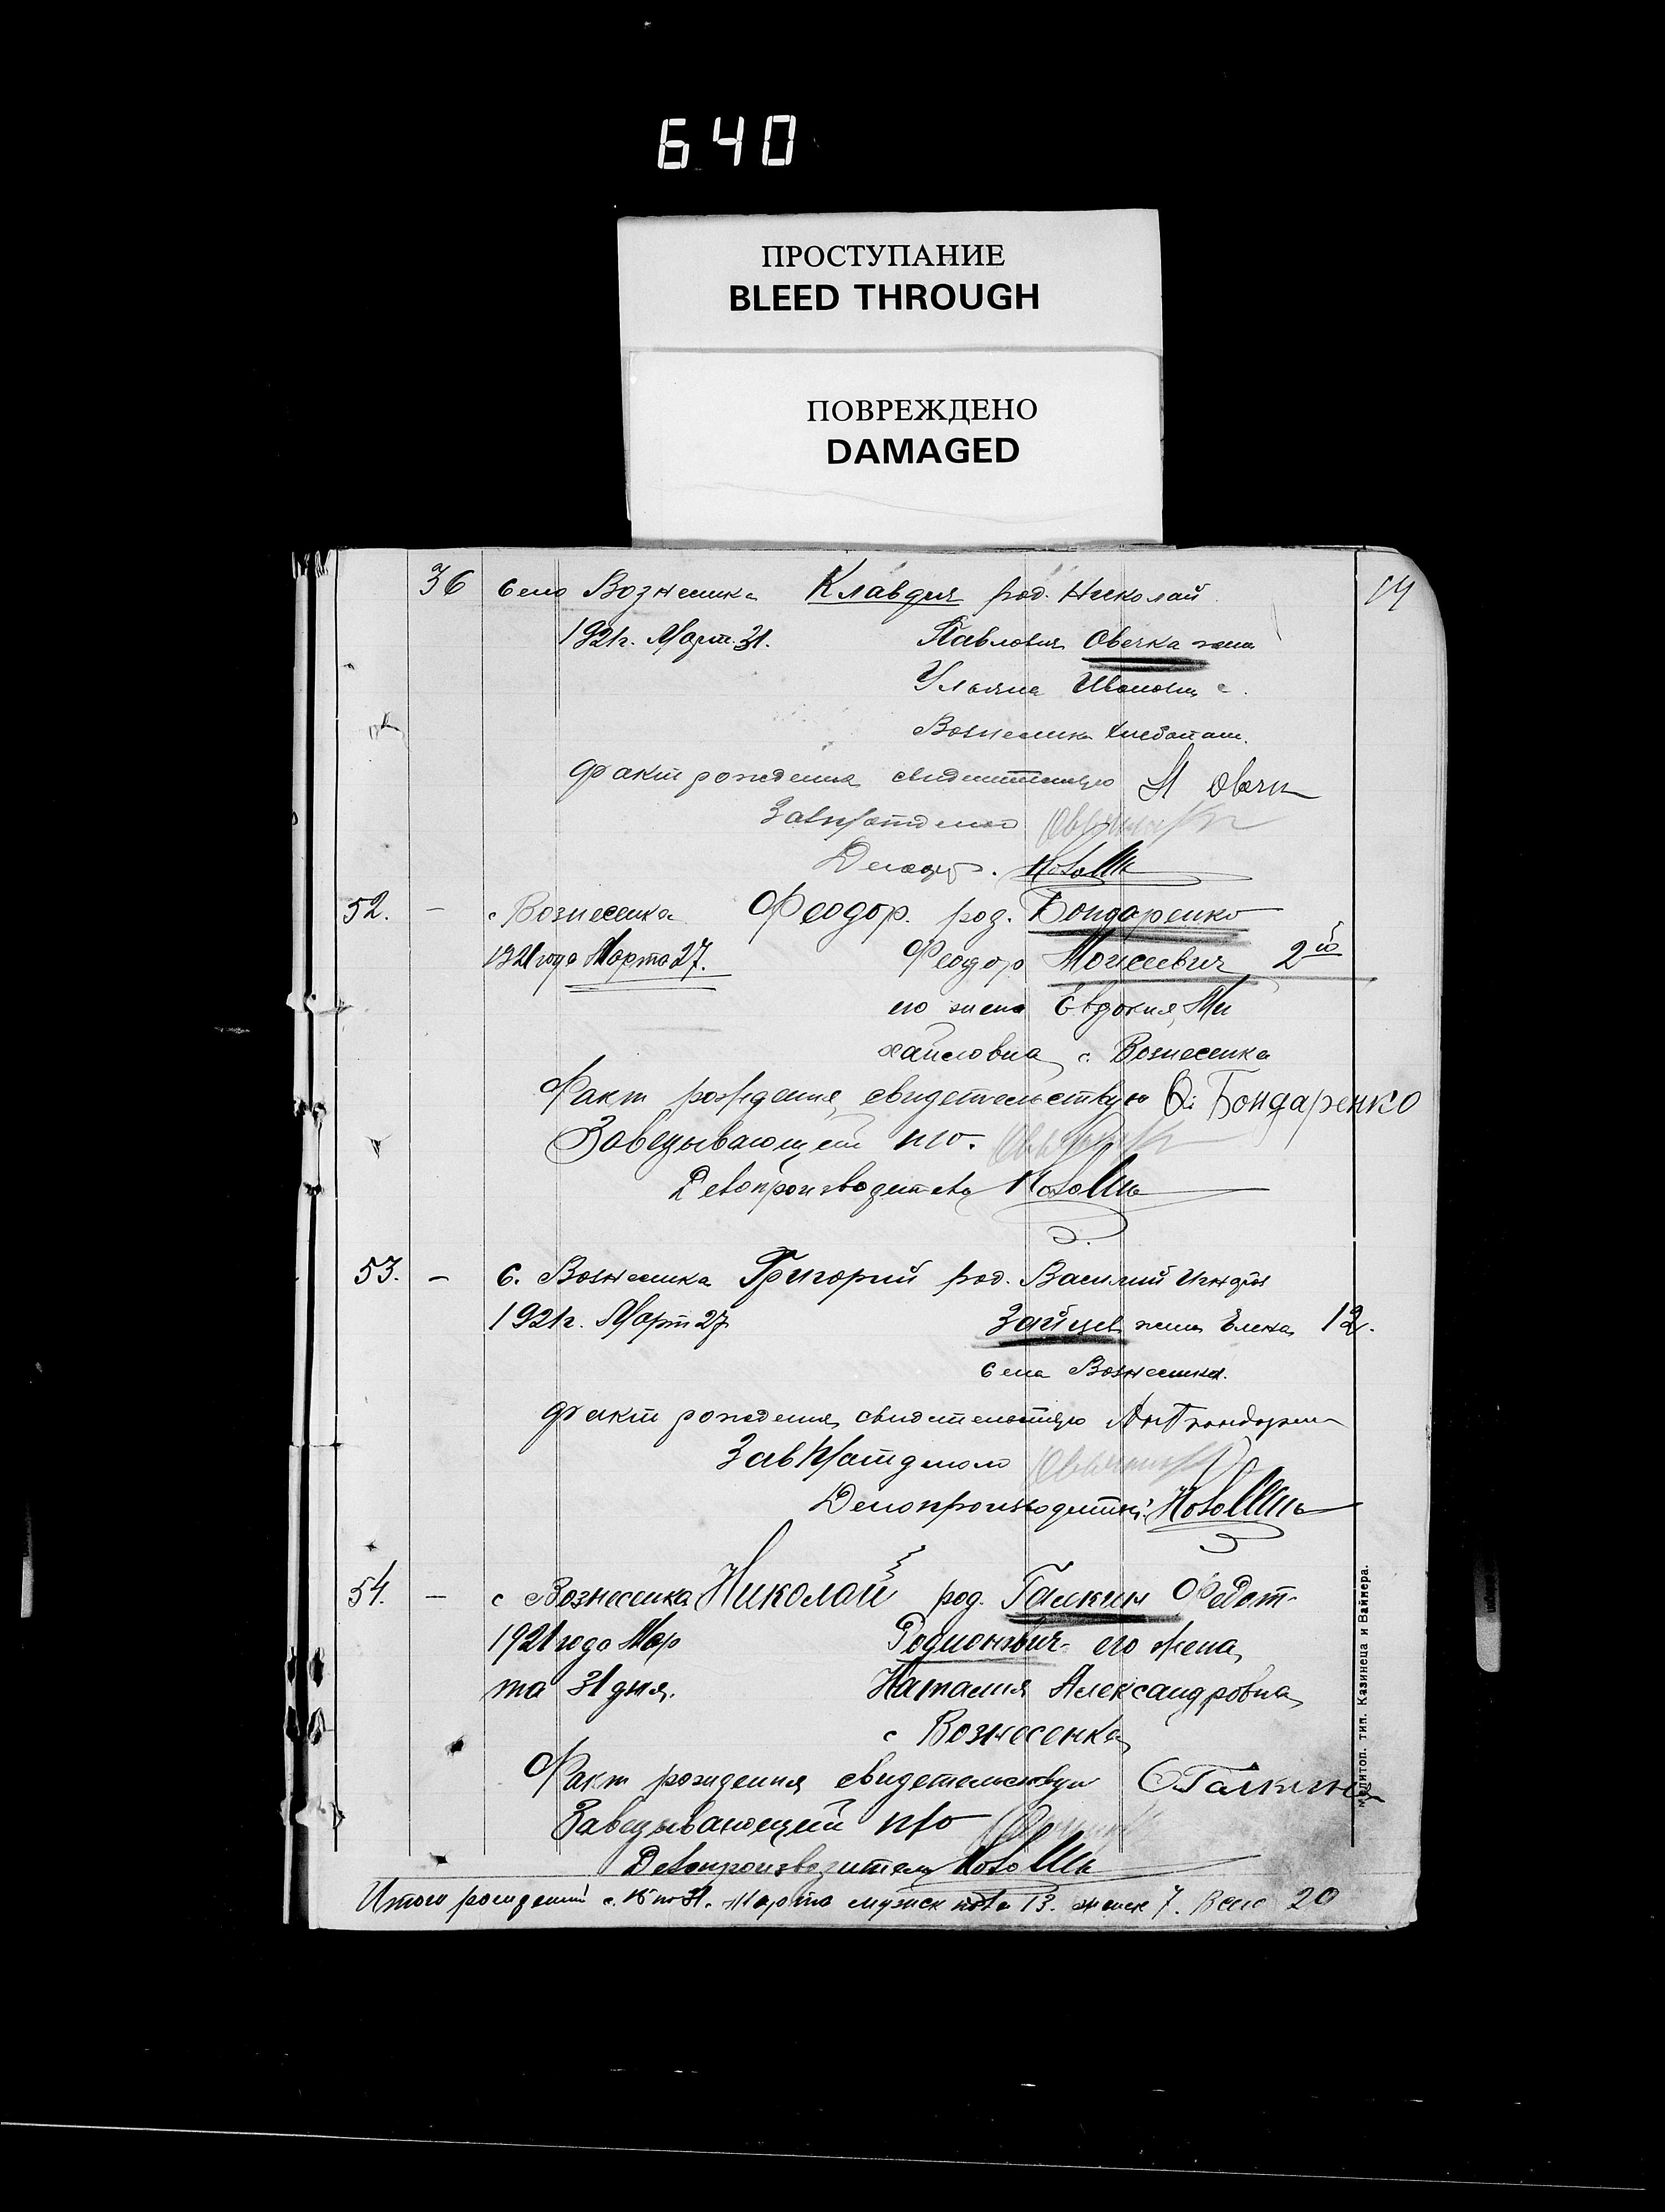 640
ПРОСТУПАНИЕ
BLEED THROUGH
ПОВРЕЖДЕНО
DAMAGED
36 село Вознесенка Клавдия род. Николай 14
1921г. Март. 31. Павлович Овечка жена
Ульяна Ивановна с.
Вознесенка
факт рождения свидетельствую Овечк
Завподотделом
Делопр.
52. — с Вознесенка Феодор. род. Бондаренко
1921 года Марта 27. Феодор Моисеевич 2й
его жена Евдокия Ми
хайловна с. Вознесенка
Факт рождения свидетельствую Бондаренко
Заведывающий п/о.
Делопроизводитель
53. — с. Вознесенка Григорий род. Василий
1921г. Март 27 Зайцев жена Елена 12.
села Вознесенка.
факт рождения свидетельствую
Завподотделом
Делопроизводитель
54. — с Вознесенка Николай род. Галкин Федот
1921 года Мар Родионович его жена
та 31 дня. Наталия Александровна
с Вознесенка
Факт рождения свидетельствую Галкин
Заведывающий п/о
Делопроизводитель
Итого рождений с. 15 по 31. Марта мужск пола 13. женск 7. Всего 20
Мелитоп. тип. Казинеца и Вайнера.